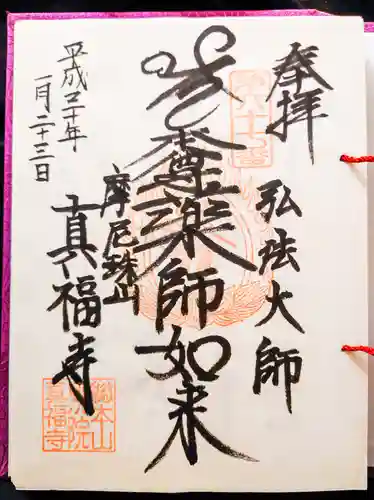 奉拝
第六十七番
弘法大師
本尊薬師如来
摩尼珠山
真福寺
平成三十年
一月二十三日
真福寺